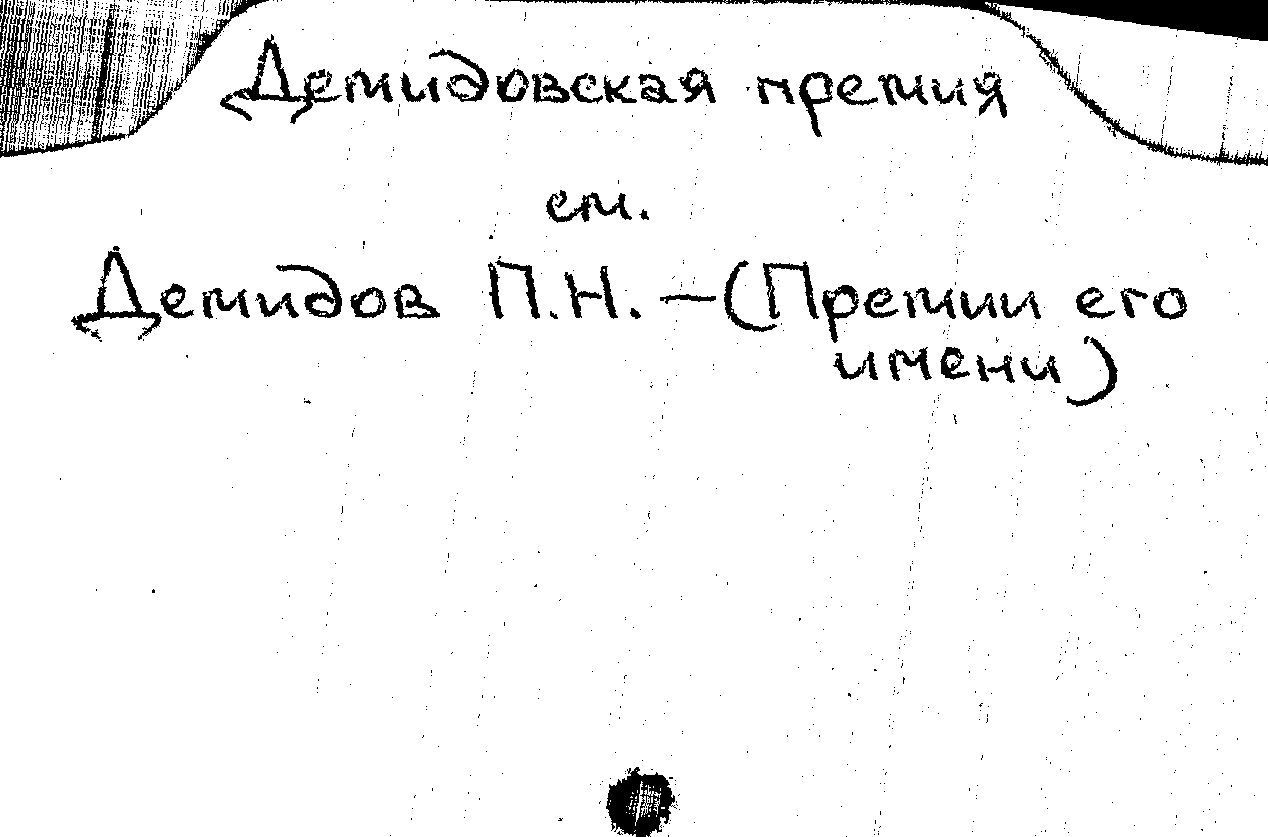 Демидовская премия
см.
Демидов П.Н. — (Премии его
имени)